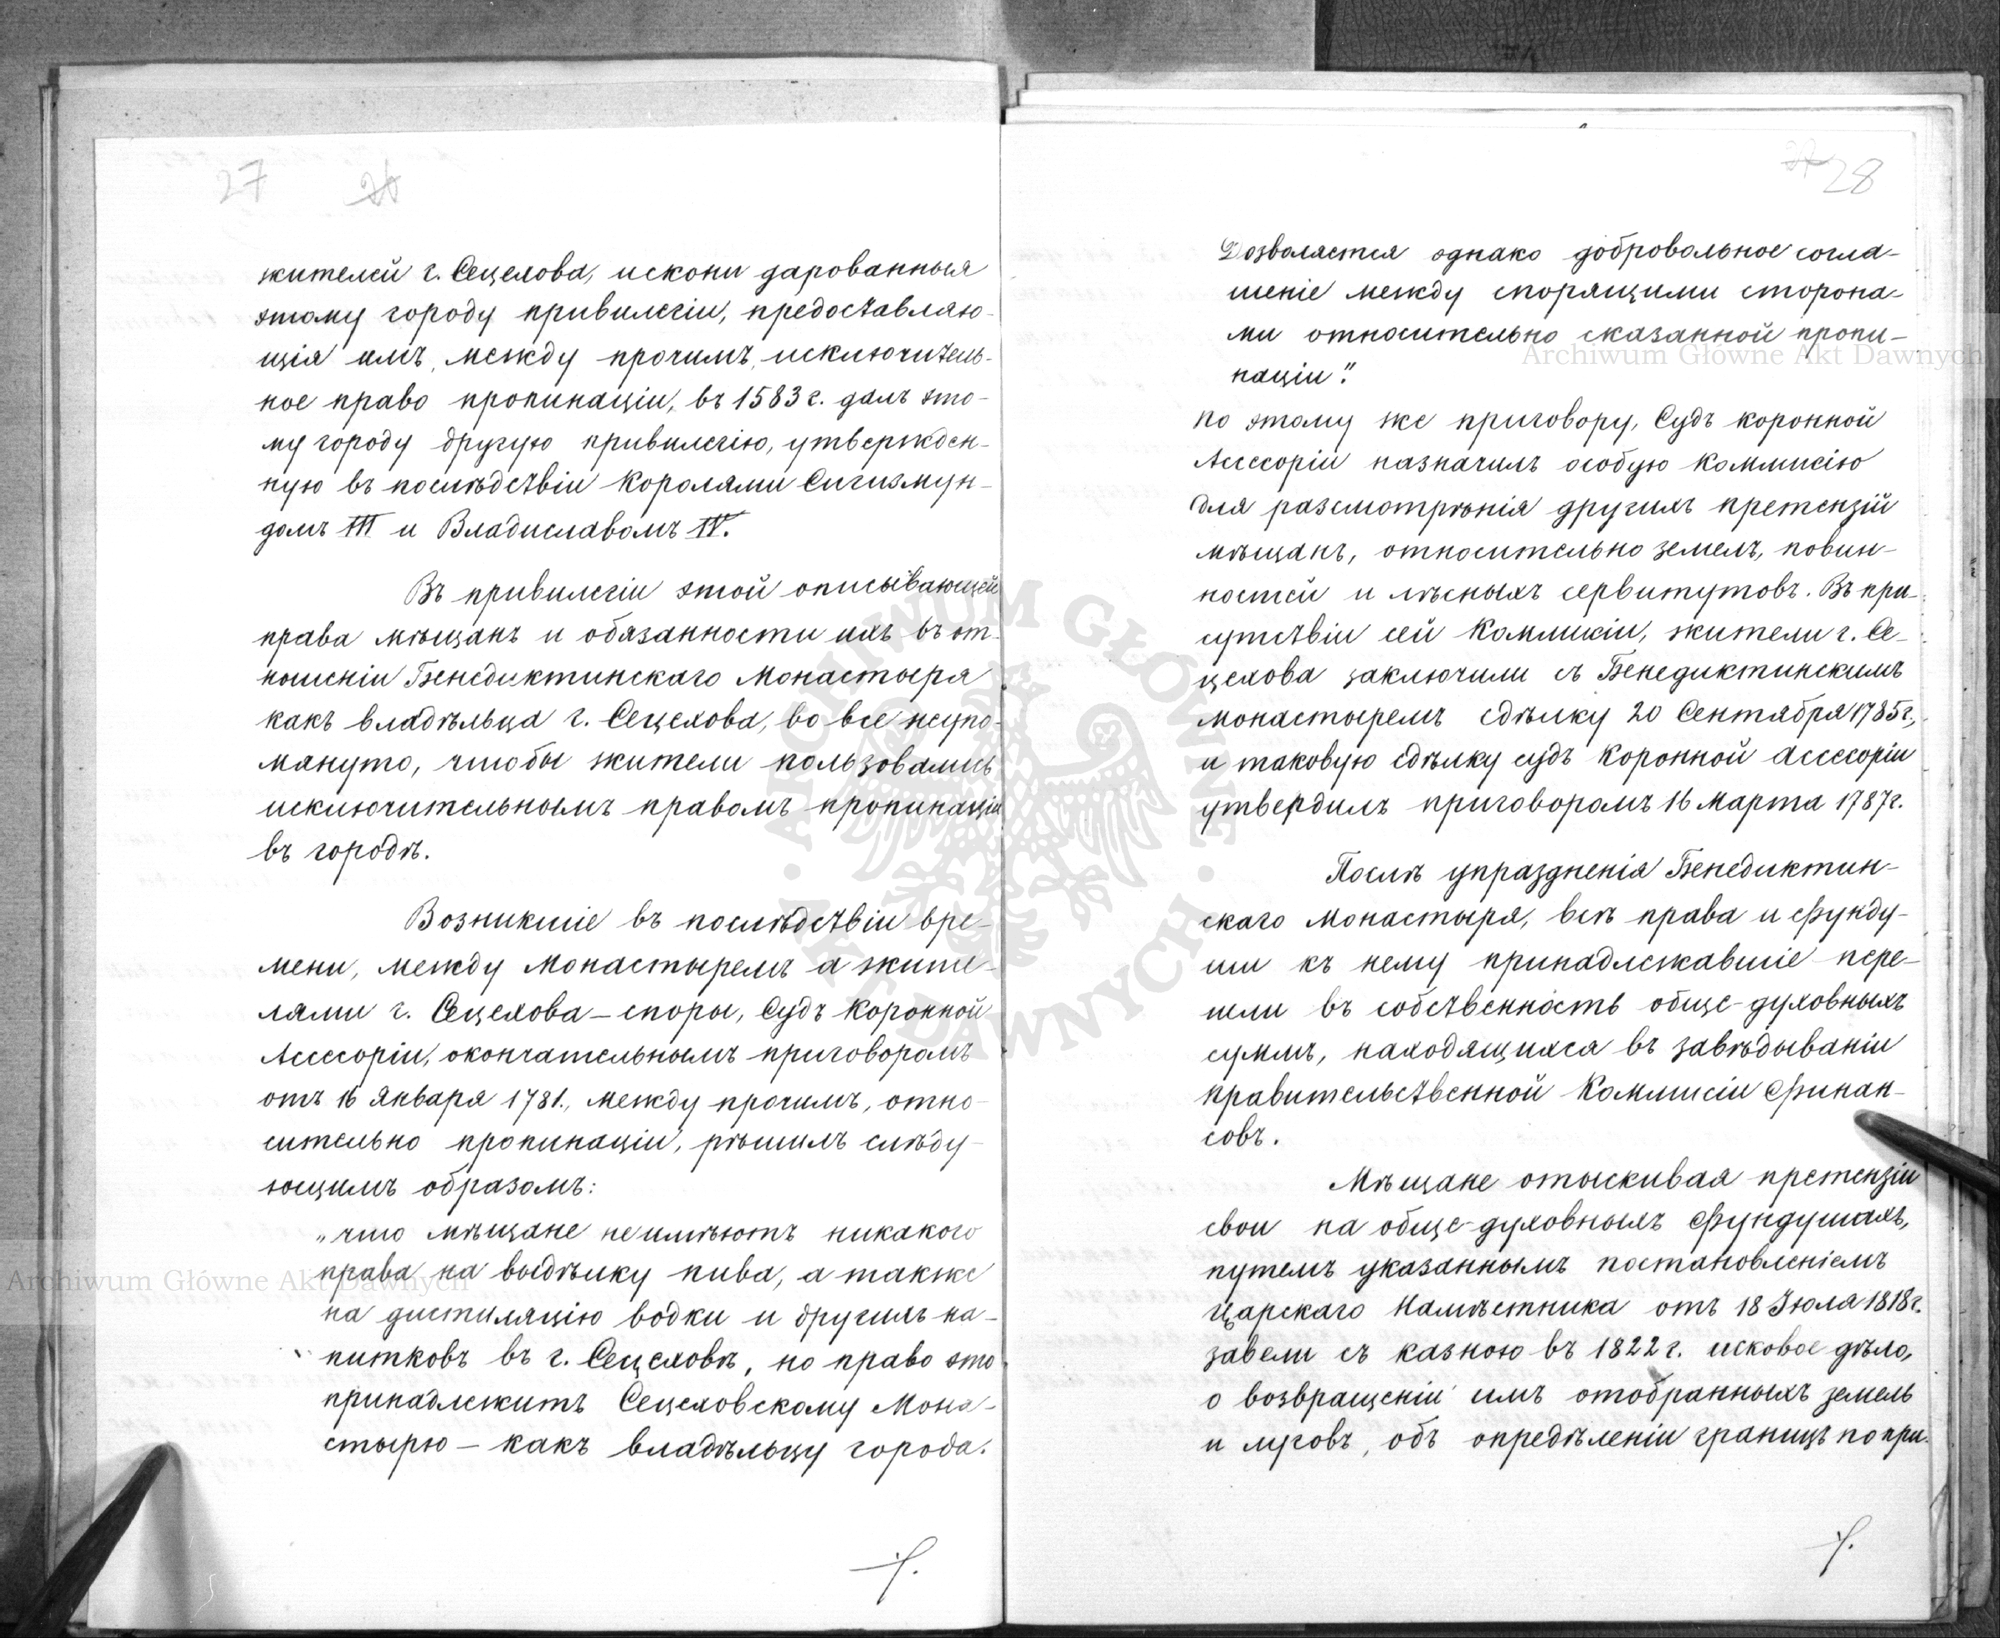 27
жителей г. Сецехова, искони дарованныя
этому городу привилегіи, предоставляю-
щія имъ, между прочимъ, исключитель-
ное право пропинаціи, въ 1583 г. далъ это-
му городу другую привилегію, утвержден-
ную въ послѣдствіи Королями Сигизмун-
домъ III и Владиславомъ IV.
Въ привилегіи этой описывающей
права мѣщанъ и обязанности ихъ въ от-
ношеніи Бенедиктинскаго Монастыря
какъ владѣльца г. Сецехова, во все неупо-
мянуто, чтобы жители пользовались
исключительнымъ правомъ пропинаціи
въ городѣ.
Возникшіе въ послѣдствіи вре-
мени, между Монастыремъ а жите-
лями г. Сецехова – споры, Судъ Коронной
Ассесоріи, окончательнымъ приговоромъ
отъ 16 Января 1781., между прочимъ, отно-
сительно пропинаціи, рѣшилъ слѣду-
ющимъ образомъ:
„что мѣщане неимѣютъ никакого
права на выдѣлку пива, а также
на дистиляцію водки и другихъ на-
питковъ въ г. Сецеховѣ, но право это
принадлежитъ Сецеховскому Мона-
стырю – какъ владѣльцу города.
28
Дозволяется однако добровольное согла-
шеніе между спорящими сторона-
ми относительно сказанной пропи-
націи".
По этому же приговору, Судъ Коронной
Ассесоріи назначилъ особую Коммисію
для разсмотрѣнія другихъ претензій
мѣщанъ, относительно земель, повин-
ностей и лѣсныхъ сервитутовъ. Въ при-
сутствіи сей Коммисіи, жители г. Се-
цехова заключили съ Бенедиктинскимъ
Монастыремъ сдѣлку 20 Сентября 1785 г.,
и таковую сдѣлку судъ Коронной Ассесоріи
утвердилъ приговоромъ 16 Марта 1787 г.
Послѣ упраздненія Бенедиктин-
скаго Монастыря, всѣ права и фунду-
ши къ нему принадлежавшіе пере-
шли въ собственность обще-духовныхъ
суммъ, находящихся въ завѣдываніи
Правительственной Коммисіи Финан-
совъ.
Мѣщане отыскивая претензіи
свои на обще-духовныхъ фундушахъ,
путемъ указаннымъ постановленіемъ
Царскаго Намѣстника отъ 18 Іюля 1818 г.
завели съ казною въ 1822 г. исковое дѣло,
о возвращеніи имъ отобранныхъ земель
и луговъ, объ опредѣленіи границъ по при-
Archiwum Główne Akt Dawnych
Archiwum Główne Akt Dawnych
ARCHIWUM GŁÓWNE AKT DAWNYCH